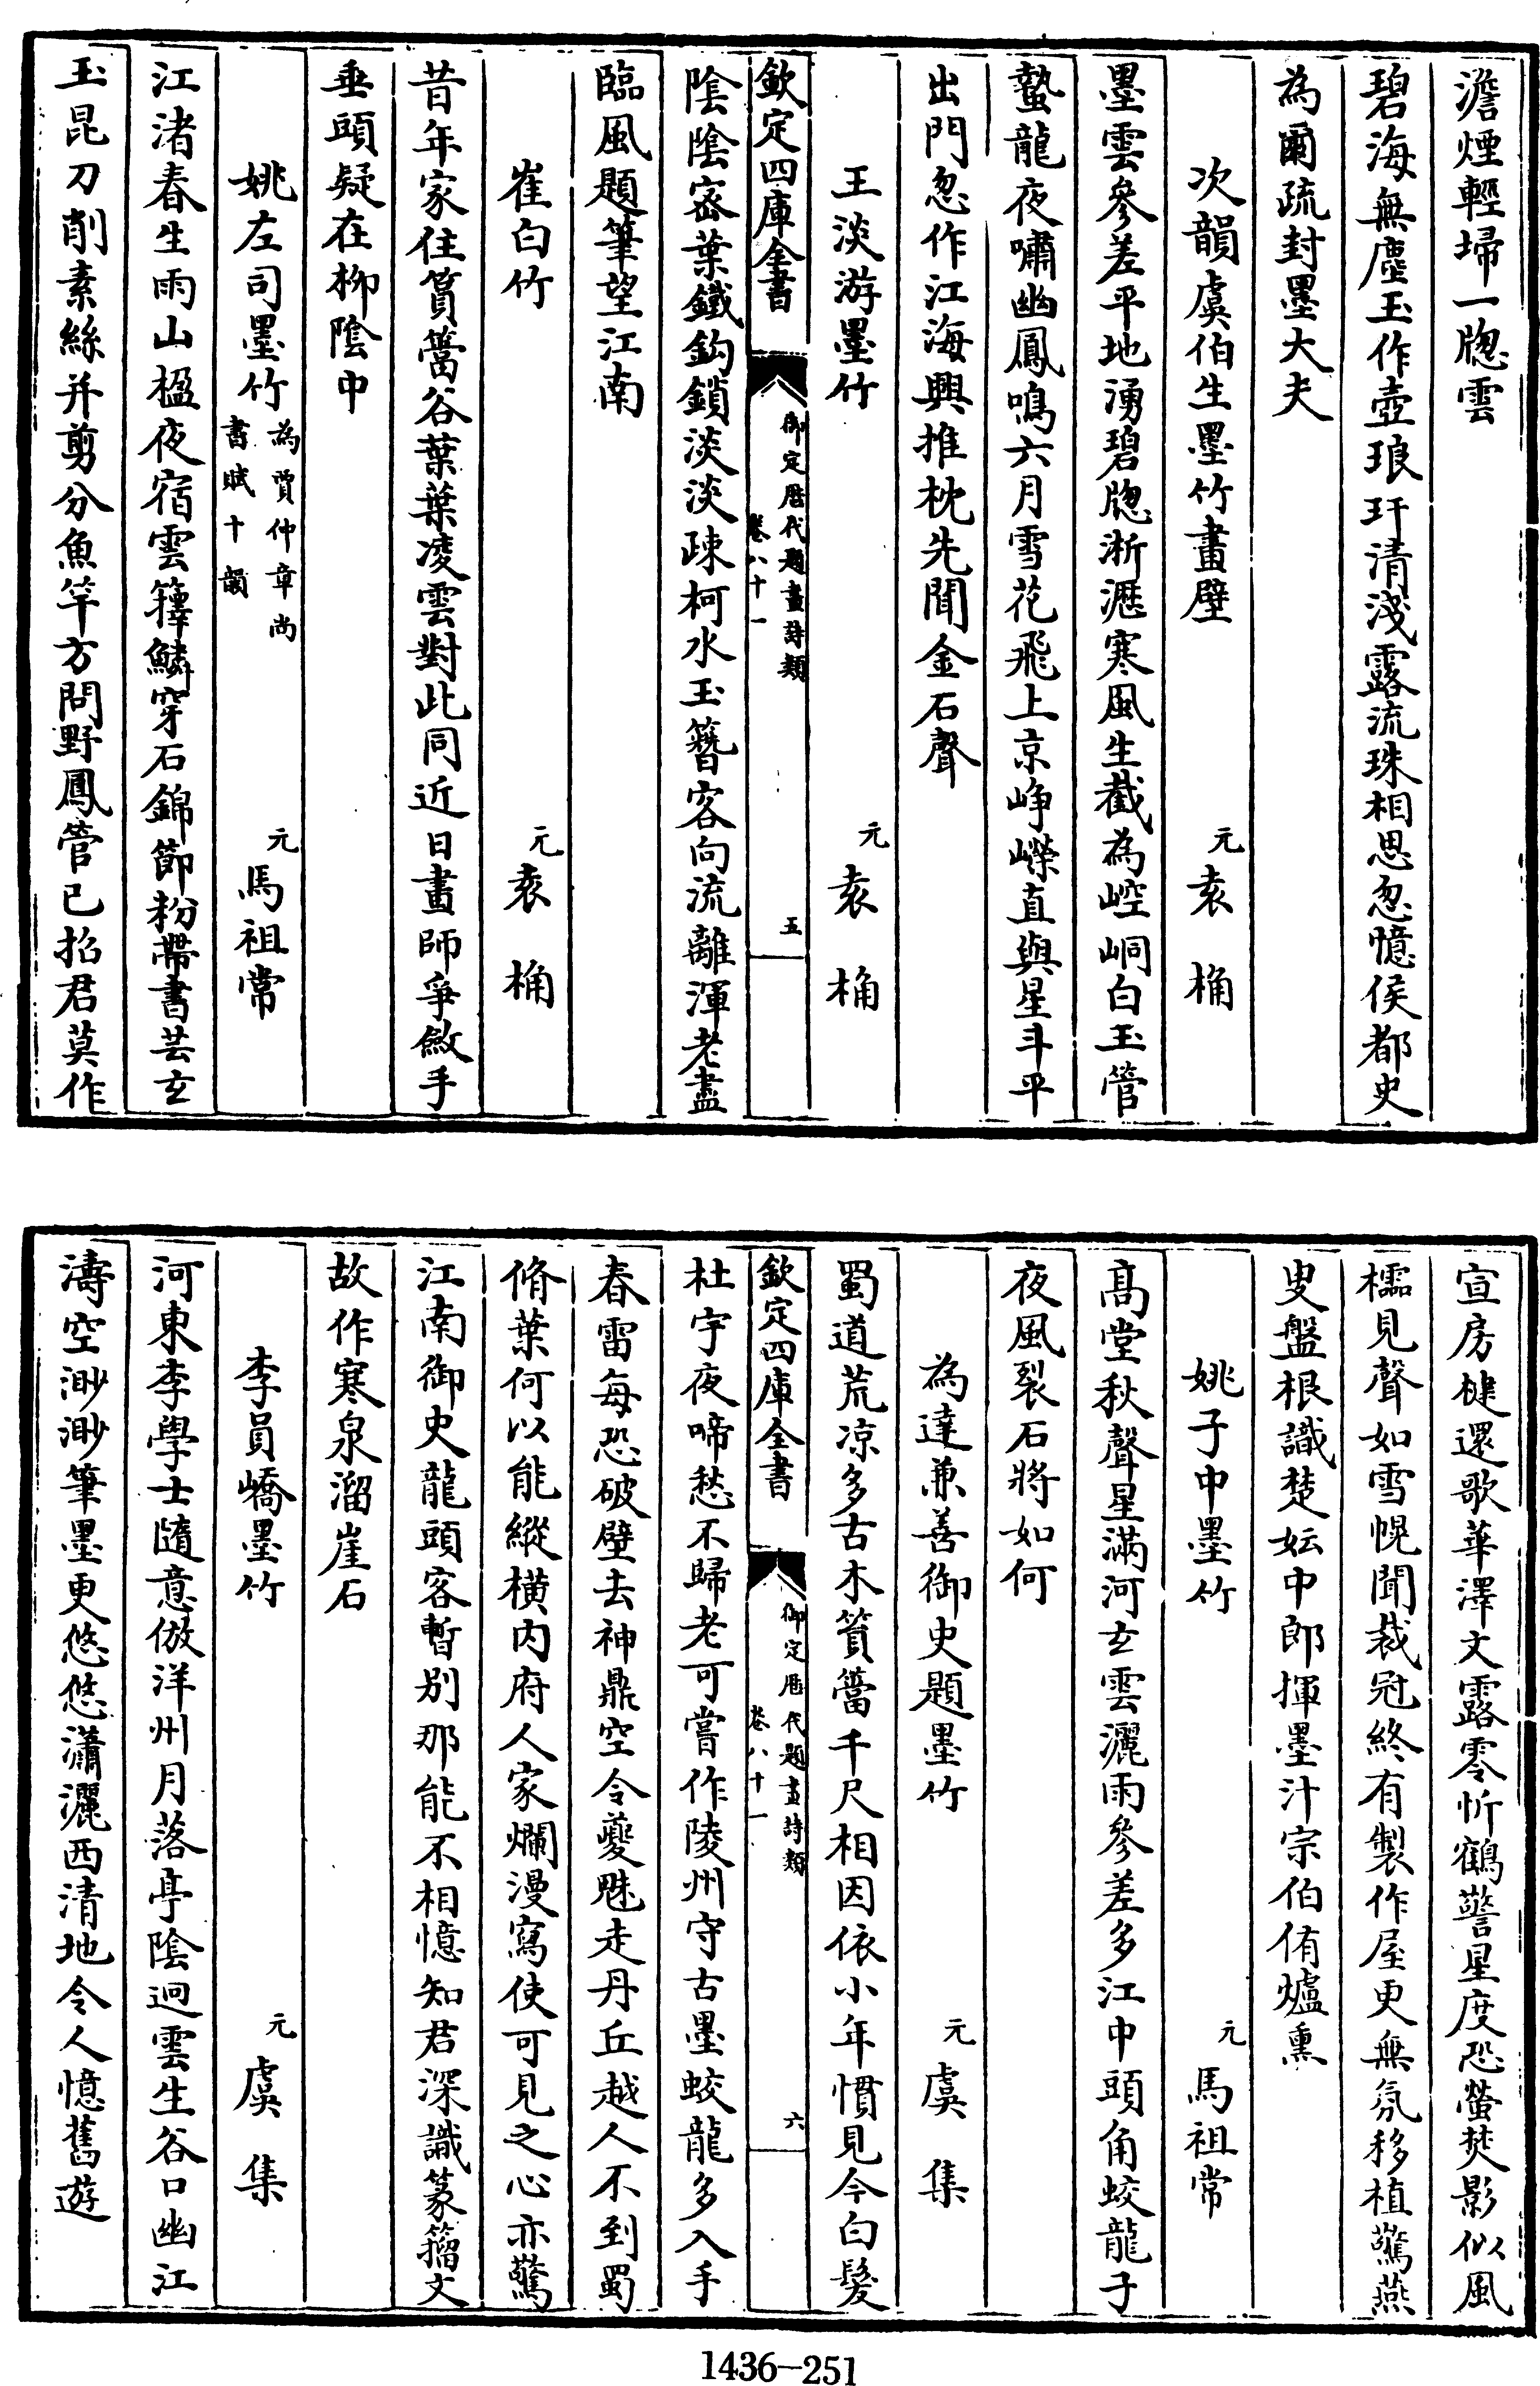 澹煙輕埽一牕雲
碧海無塵玉作壺琅玕清淺露流珠相思忽憶侯都史
為爾疏封墨大夫
次韻虞伯生墨竹畫壁 元 袁桷
墨雲參差平地湧碧牕淅瀝寒風生截為崆峒白玉管
蟄龍夜嘯幽鳳鳴六月雪花飛上京崢嶸直與星斗平
出門忽作江海興推枕先聞金石聲
王淡游墨竹 元 袁桷
欽定四庫全書 御定歷代題畫詩類 卷八十一 五
陰陰密葉鐵鈎鎖淡淡疎柯水玉簪客向流離渾老盡
臨風題筆望江南
崔白竹 元 袁桷
昔年家住篔簹谷葉葉凌雲對此同近日畫師爭斂手
垂頭疑在柳陰中
姚左司墨竹 為賈仲章尚書賦十韻 元 馬祖常
江渚春生雨山楹夜宿雲籜鱗穿石錦節粉帶書芸玄
玉昆刀削素絲并剪分魚竿方問野鳳管已招君莫作
宣房楗還歌華澤文露零忻鶴警星度恐螢焚影似風
櫺見聲如雪幌聞裁冠終有製作屋更無氛移植驚燕
叟盤根識楚妘中郎揮墨汁宗伯侑爐熏
姚子中墨竹 元 馬祖常
高堂秋聲星滿河玄雲灑雨參差多江中頭角蛟龍子
夜風裂石將如何
為達兼善御史題墨竹 元 虞集
蜀道荒涼多古木篔簹千尺相因依小年慣見今白髮
欽定四庫全書 御定歷代題畫詩類 卷八十一 六
杜宇夜啼愁不歸老可嘗作陵州守古墨蛟龍多入手
春雷每恐破壁去神鼎空令夔魖走丹丘越人不到蜀
脩葉何以能縱橫内府人家爛漫寫使可見之心亦驚
江南御史龍頭客暫別那能不相憶知君深識篆籀文
故作寒泉溜崖石
李員嶠墨竹 元 虞集
河東李學士隨意倣洋州月落亭陰迥雲生谷口幽江
濤空渺渺筆墨更悠悠瀟灑西清地令人憶舊遊
1436-251